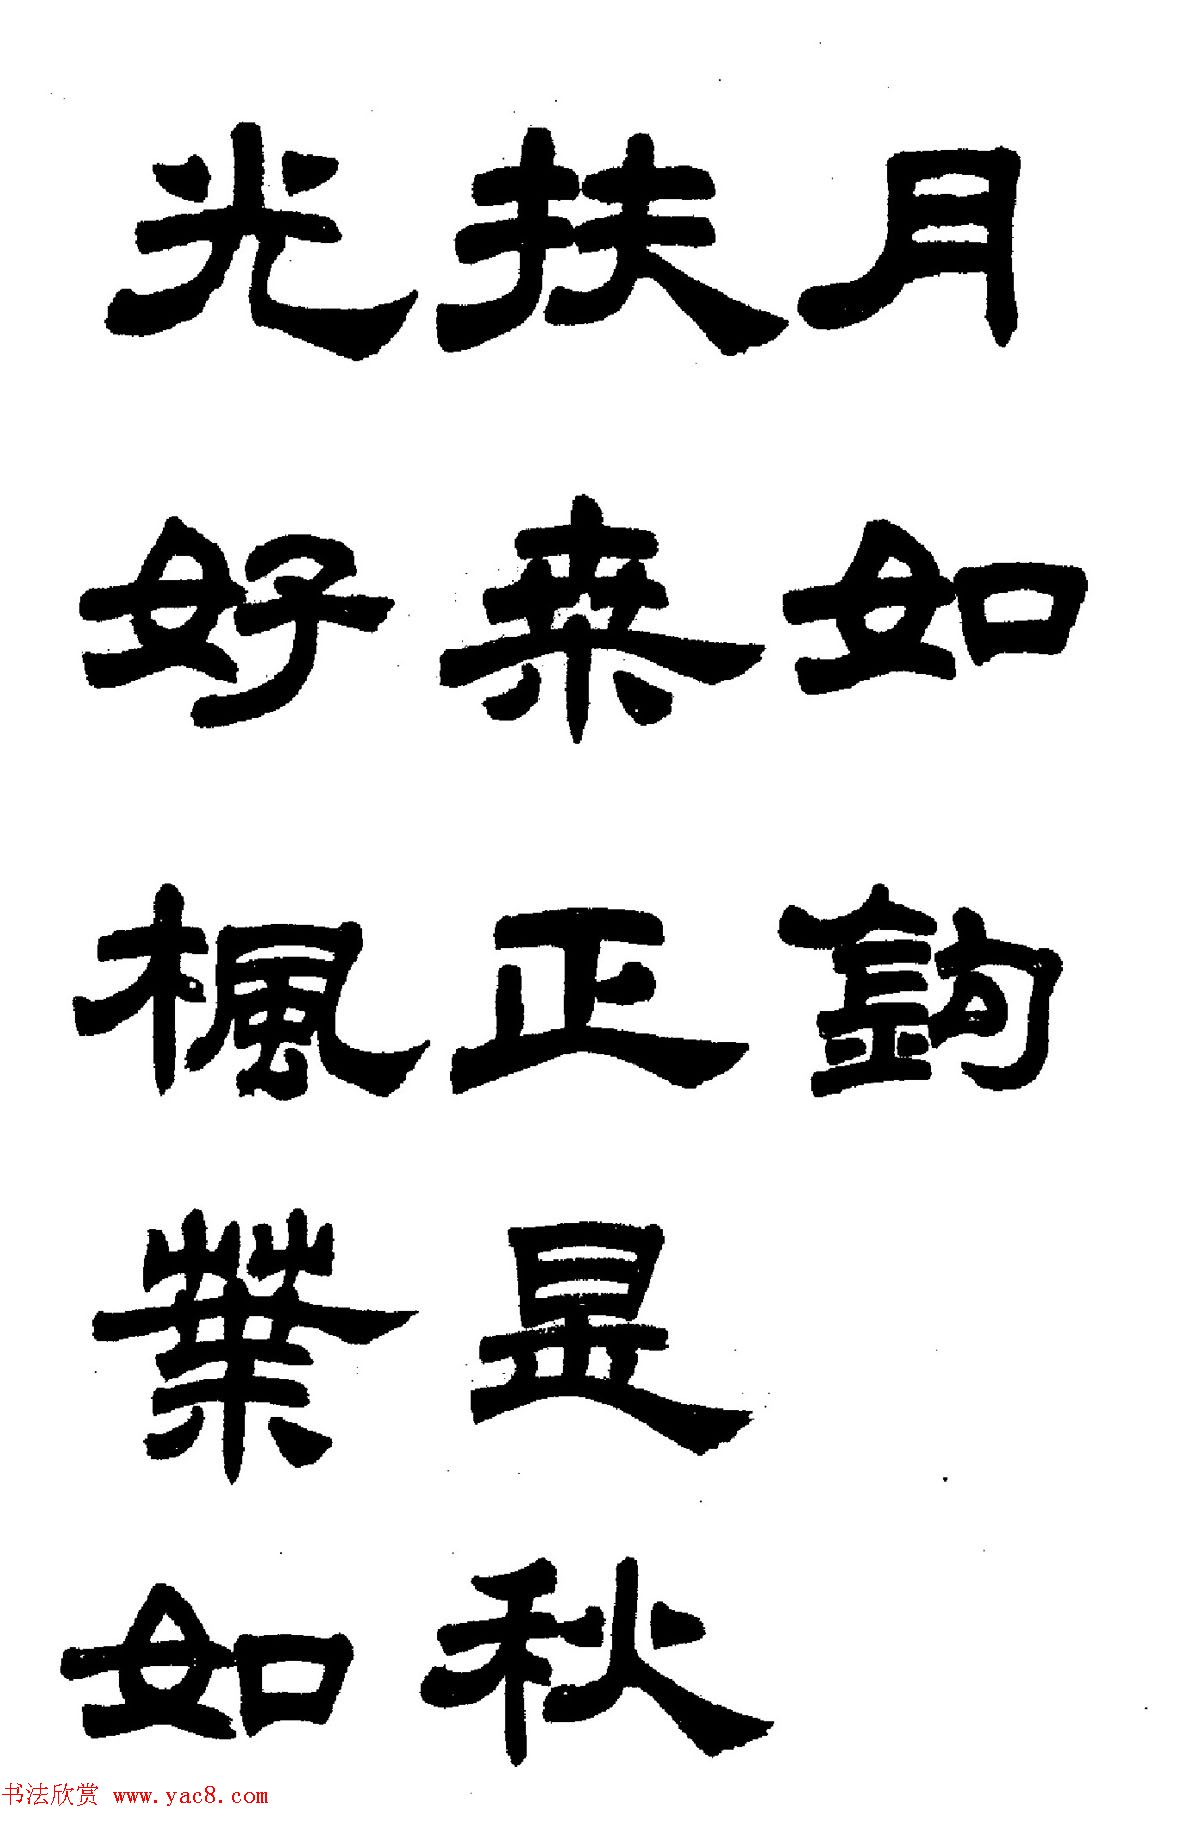 月如鉤
扶桒正是秋
光好楓葉如
书法欣赏 www.yac8.com